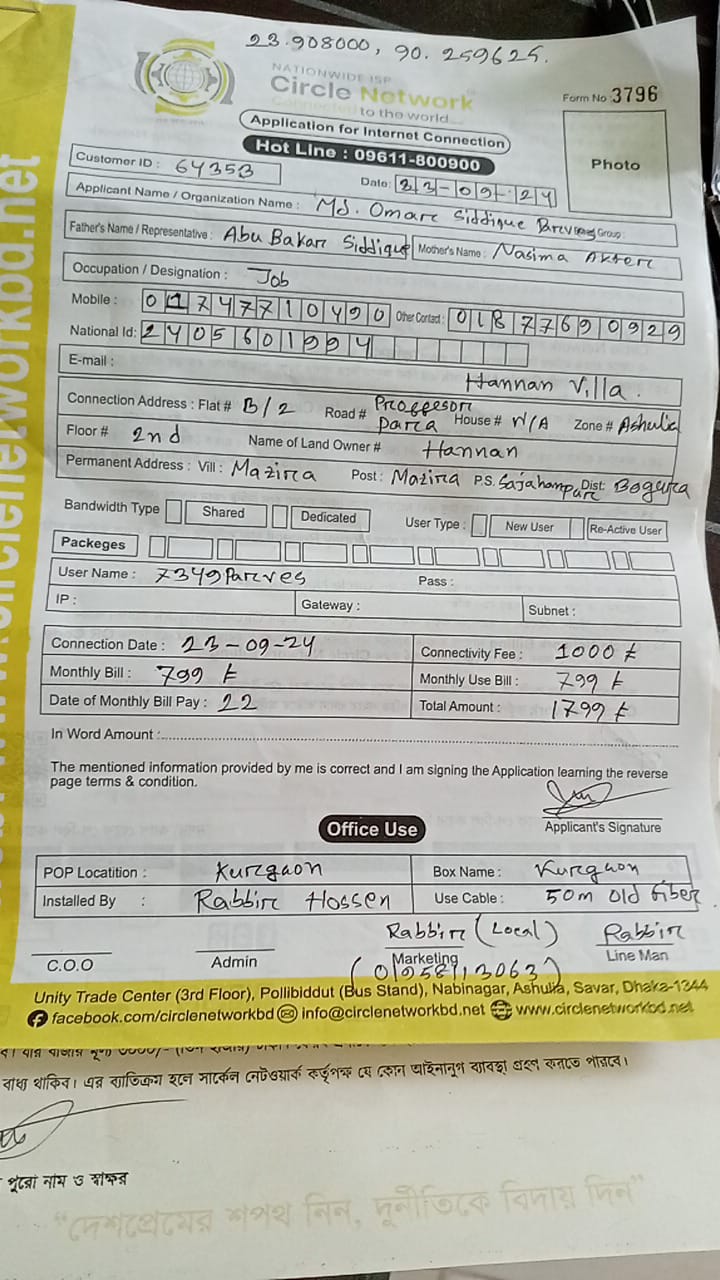 23.908000, 90.259625.
NATIONWIDE ISP
Circle Network
Connected to the world
Form No 3796
Application for Internet Connection
Hot Line : 09611-800900
Photo
Customer ID : 64353
Date: 23-09-24
Applicant Name / Organization Name : Md. Omar Siddique Parves Group :
Father's Name / Representative : Abu Bakar Siddique Mother's Name : Nasima Akter
Occupation / Designation : Job
Mobile : 01747710490 Other Contact : 01877690929
National Id: 2405601994
E-mail :
Hannan Villa.
Connection Address : Flat # B/2 Road # Proffesor Para House # N/A Zone # Ashulia
Floor # 2nd Name of Land Owner # Hannan
Permanent Address : Vill : Mazira Post : Mazira P.S. Sajahanpur Dist: Bogura
Bandwidth Type Shared Dedicated User Type : New User Re-Active User
Packeges
User Name : 7349Parves Pass :
IP : Gateway : Subnet :
Connection Date : 23-09-24 Connectivity Fee : 1000 ৳
Monthly Bill : 799 ৳ Monthly Use Bill : 799 ৳
Date of Monthly Bill Pay : 22 Total Amount : 1799 ৳
In Word Amount :
The mentioned information provided by me is correct and I am signing the Application learning the reverse
page terms & condition.
Applicant's Signature
Office Use
POP Locatition : Kurgaon Box Name : Kurgaon
Installed By : Rabbir Hossen Use Cable : 50m old fiber
Rabbir (Local) Rabbir
C.O.O Admin Marketing Line Man
(01958113063)
Unity Trade Center (3rd Floor), Pollibiddut (Bus Stand), Nabinagar, Ashulia, Savar, Dhaka-1344
facebook.com/circlenetworkbd info@circlenetworkbd.net www.circlenetworkbd.net
বাধ্য থাকিব। এর ব্যতিক্রম হলে সার্কেল নেটওয়ার্ক কর্তৃপক্ষ যে কোন আইনানুগ ব্যাবস্থা গ্রহণ করতে পারবে।
পুরো নাম ও স্বাক্ষর
“দেশপ্রেমের শপথ নিন, দুর্নীতিকে বিদায় দিন”